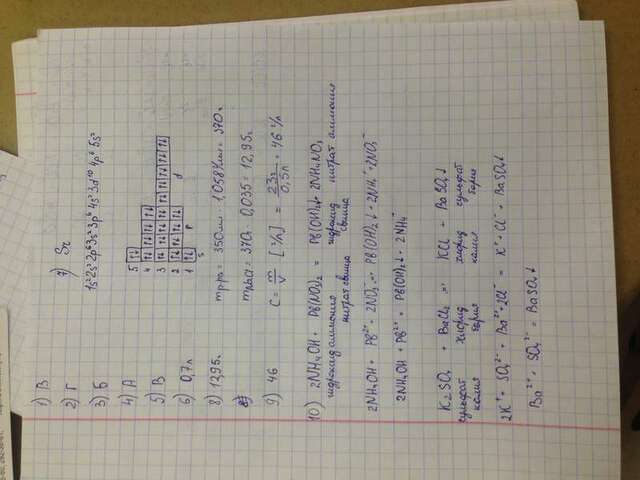 1) В
2) Г
3) Б
4) А
5) В
6) 0,7л
8) 12,95г
9) 46
7) Sr
1s² 2s² 2p⁶ 3s² 3p⁶ 4s² 3d¹⁰ 4p⁶ 5s²
5 ↑↓
4 ↑↓ ↑↓ ↑↓ ↑↓
3 ↑↓ ↑↓ ↑↓ ↑↓ ↑↓ ↑↓ ↑↓ ↑↓ ↑↓
2 ↑↓ ↑↓ ↑↓ ↑↓ d
1 ↑↓ p
s
m р-ра = 350мл · 1,058г/мл = 370г
m NaCl = 370г · 0,035 = 12,95г
C = m/V [г/л] = 23г/0,5л = 46 г/л
10) 2NH₄OH + Pb(NO₃)₂ = Pb(OH)₂↓ + 2NH₄NO₃
гидроксид аммония гидроксид нитрат аммония
нитрат свинца свинца
2NH₄OH + Pb²⁺ + 2NO₃⁻ = Pb(OH)₂↓ + 2NH₄⁺ + 2NO₃⁻
2NH₄OH + Pb²⁺ = Pb(OH)₂↓ + 2NH₄⁺
K₂SO₄ + BaCl₂ = KCl + BaSO₄↓
сульфат хлорид хлорид сульфат
калия бария калия бария
2K⁺ + SO₄²⁻ + Ba²⁺ + 2Cl⁻ = K⁺ + Cl⁻ + BaSO₄↓
Ba²⁺ + SO₄²⁻ = BaSO₄↓